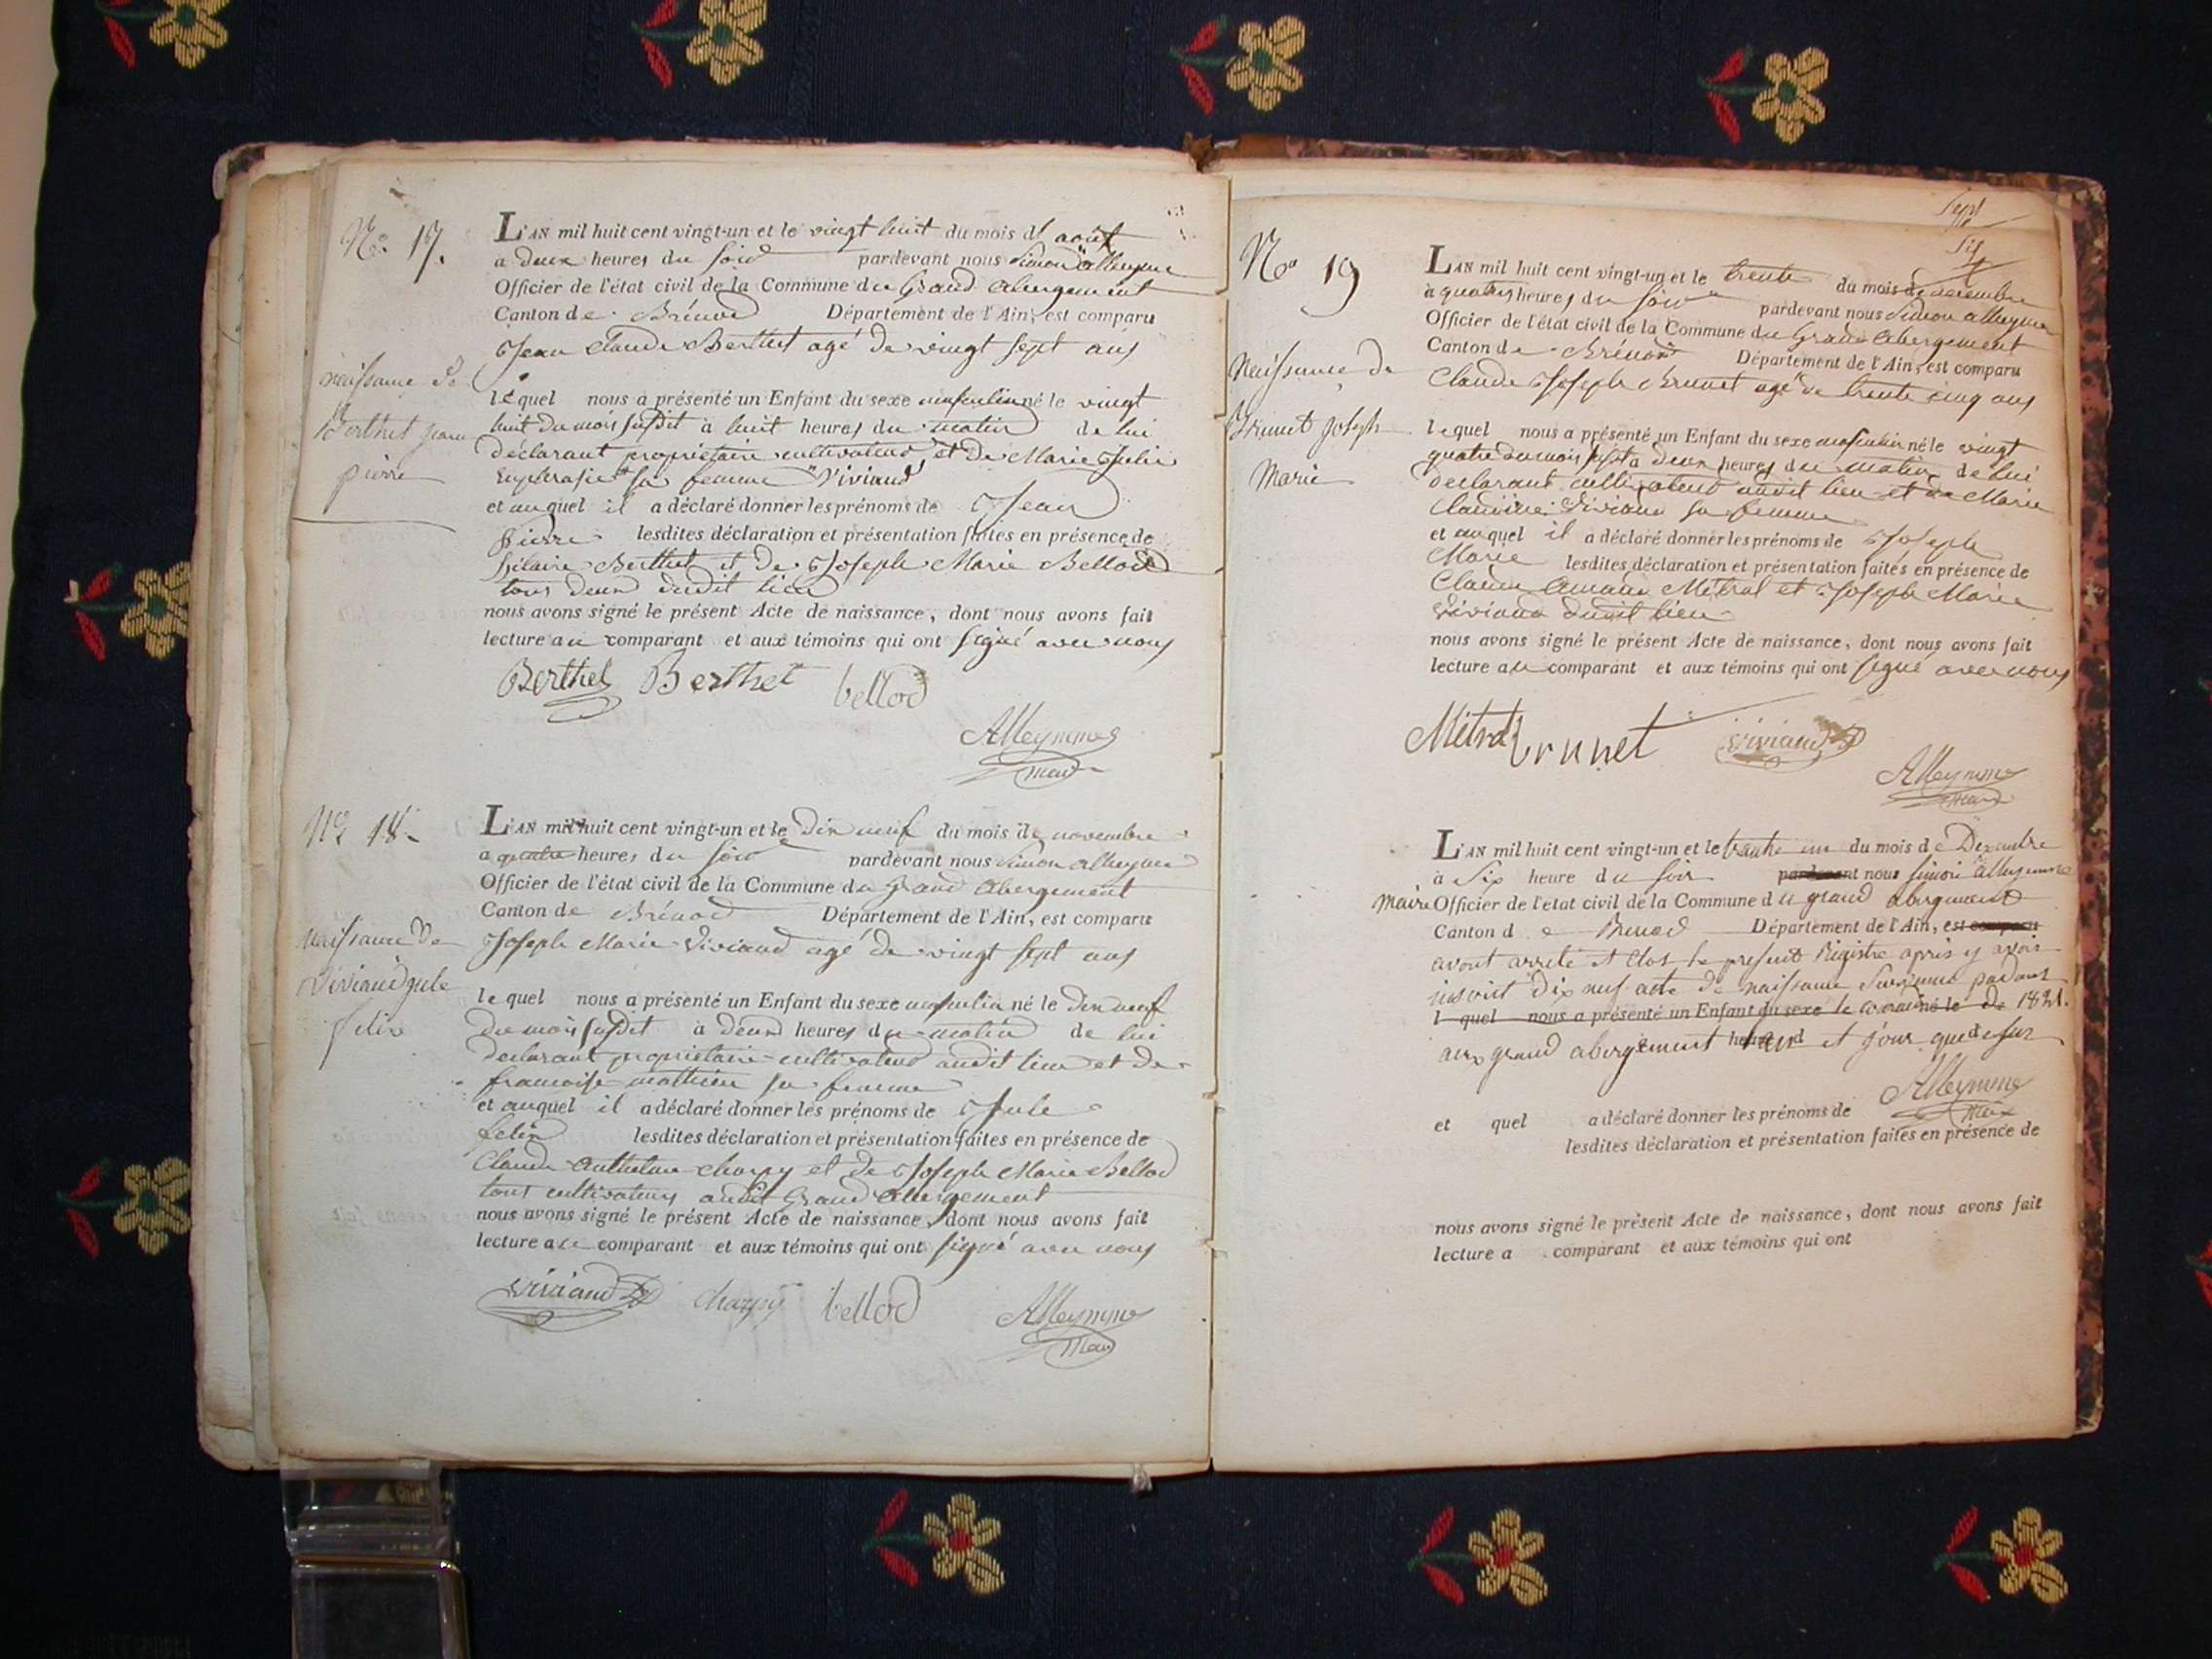 No. 17.
naissance de
Berthet jean
pierre
L'AN mil huit cent vingt-un et le vingt huit du mois d' août
a deux heures du soir pardevant nous Simon alleymme
Officier de l'état civil de la Commune du Grand abergement
Canton de Brénod Département de l'Ain, est comparu
Jean Claude Berthet agé de vingt sept ans
lequel nous a présenté un Enfant du sexe masculin né le vingt
huit du mois susdit à huit heures du matin de lui
déclarant propriétaire cultivateur et de Marie Julie
Euphrasie sa femme Viviand
et auquel il a déclaré donner les prénoms de Jean
pierre lesdites déclaration et présentation faites en présence de
hilaire Berthet et de Joseph Marie Bellod
tous deux dudit lieu
nous avons signé le présent Acte de naissance, dont nous avons fait
lecture au comparant et aux témoins qui ont signé avec nous
Berthet Berthet bellod
Alleymme
maire
No. 18.
naissance de
Viviand jule
felix
L'AN mil huit cent vingt-un et le dix neuf du mois de novembre
a quatre heures du soir pardevant nous Simon alleymme
Officier de l'état civil de la Commune du Grand abergement
Canton de Brénod Département de l'Ain, est comparu
Joseph Marie Viviand agé de vingt sept ans
lequel nous a présenté un Enfant du sexe masculin né le dix neuf
du mois susdit à deux heures du matin de lui
declarant propriétaire cultivateur audit lieu et de
francoise mathieu sa femme
et auquel il a déclaré donner les prénoms de Jule
felix lesdites déclaration et présentation faites en présence de
Claude Anthelme charpy et de Joseph Marie Bellod
tous cultivateurs audit Grand abergement
nous avons signé le présent Acte de naissance, dont nous avons fait
lecture au comparant et aux témoins qui ont signé avec nous
viviand charpy bellod
Alleymme
maire
Sept
No. 19
Naissance de
Brunet joseph
Marie
L'AN mil huit cent vingt-un et le trente du mois de decembre
à quatre heures du soir pardevant nous Simon alleymme
Officier de l'état civil de la Commune du Grand abergement
Canton de Brénod Département de l'Ain, est comparu
Claude Joseph Brunet agé de trente cinq ans
lequel nous a présenté un Enfant du sexe masculin né le vingt
quatre du mois susdit a deux heures du matin de lui
declarant cultivateur audit lieu et de Marie
Claudine Viviand sa femme
et auquel il a déclaré donner les prénoms de Joseph
Marie lesdites déclaration et présentation faites en présence de
Claude Amand Métral et Joseph Marie
Viviand dudit lieu
nous avons signé le présent Acte de naissance, dont nous avons fait
lecture au comparant et aux témoins qui ont signé avec nous
Métral brunet viviand
Alleymme
maire
L'AN mil huit cent vingt-un et le trente un du mois de Decembre
à Six heure du soir pardevant nous simon alleymme
maire Officier de l'etat civil de la Commune du grand abergement
Canton de Brenod Département de l'Ain, est comparu
avont arreté et clos le present Registre après y avoir
inscrit dix neuf acte de naissance Survenue pendant
l quel nous a présenté un Enfant du sexe le courant né le de 1821.
aux grand abergement heures d l'an et jour que desus
Alleymme
maire
et quel a déclaré donner les prénoms de
lesdites déclaration et présentation faites en présence de
nous avons signé le présent Acte de naissance, dont nous avons fait
lecture a comparant et aux témoins qui ont